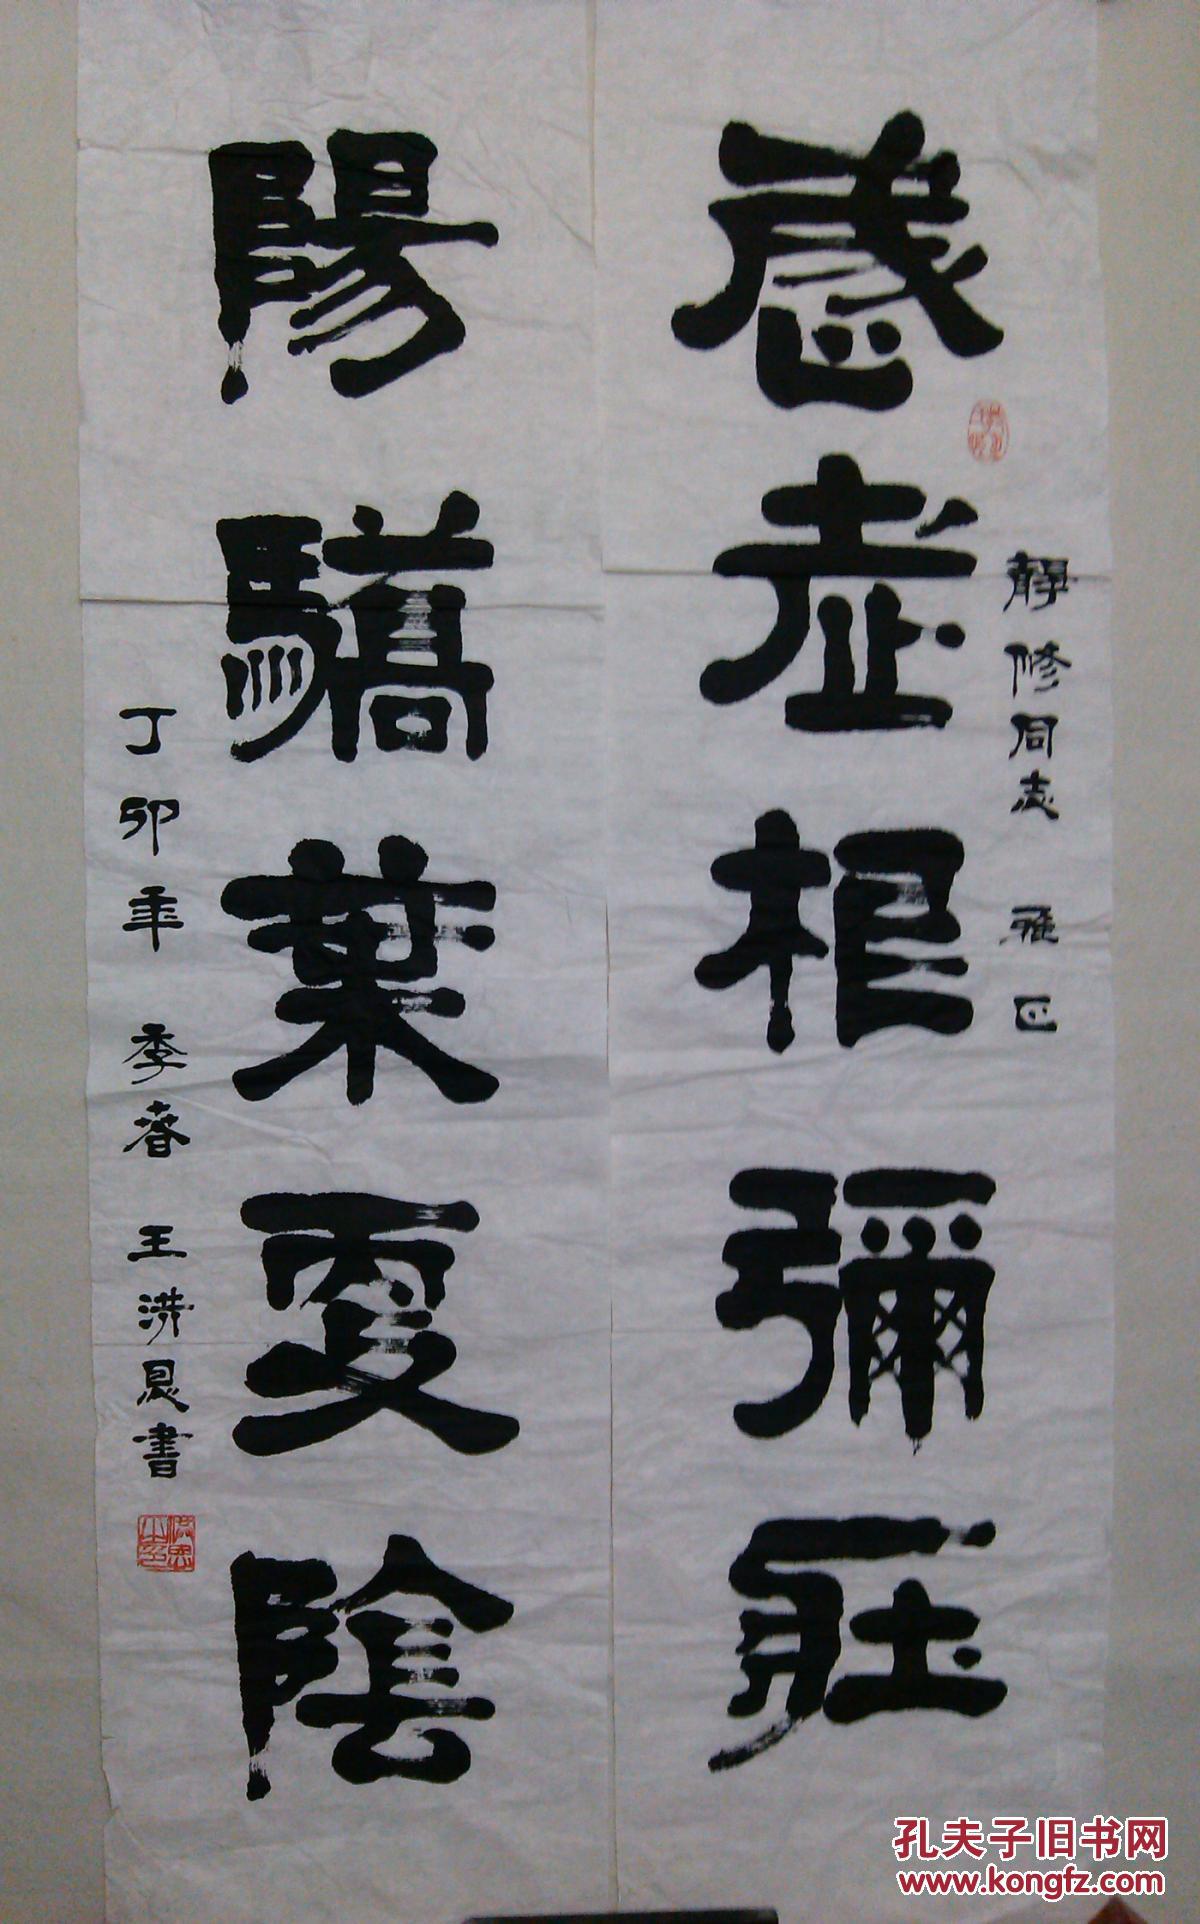 歲老根彌壯
陽驕葉更陰
靜修同志 雅正
丁卯年 季春 王洪書
孔夫子旧书网
www.kongfz.com